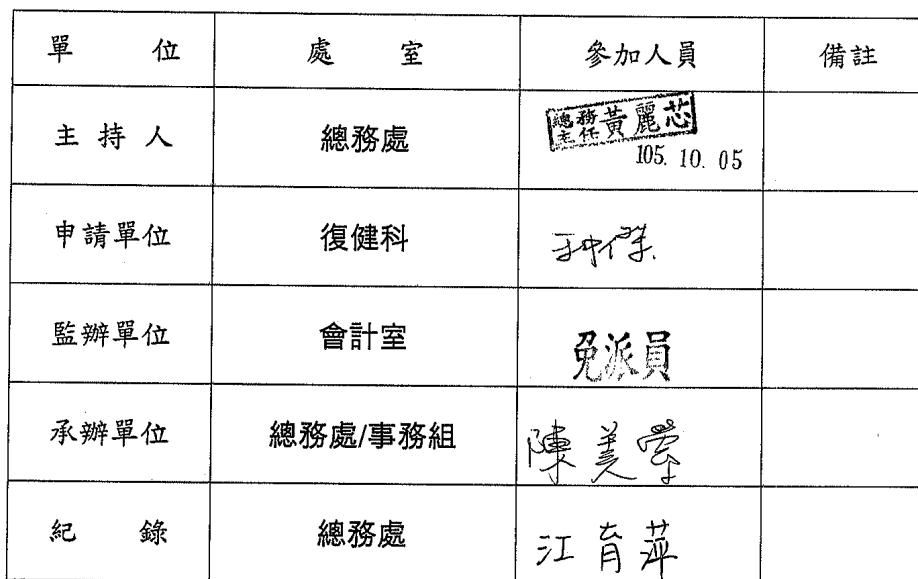 單 位 處 室 參加人員 備註
主持人 總務處 總務主任 黃麗芯
105. 10. 05
申請單位 復健科
監辦單位 會計室 免派員
承辦單位 總務處/事務組 陳美
紀 錄 總務處 江育萍